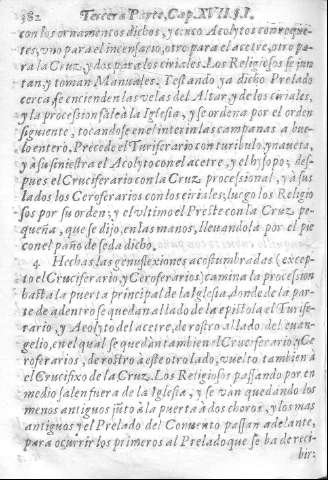 382 Tercera Parte, Cap. XVII. §. I.
con los ornamentos dichos, y cinco Acolytos con roquetes,
vno para el incensario, otro para el acetre, otro para
la Cruz, y dos para los ciriales. Los Religiosos se juntan,
y toman Manuales. Y estando ya dicho Prelado
cerca, se encienden las velas del Altar, y de los ciriales,
y la procession sale à la Iglesia, y se ordena por el orden
siguiente, tocandose en el interin las campanas a buelo
entero. Precede el Turiferario con turibulo, y naueta,
y à su siniestra el Acolyto con el acetre, y el hysopo; despues
el Cruciferario con la Cruz processional, y à sus
lados los Ceroferarios con los ciriales; luego los Religiosos
por su orden; y el vltimo el Preste con la Cruz pequeña,
que se dijo, en las manos, lleuandola por el pie
con el paño de seda dicho.
4 Hechas las genuflexiones acostumbradas (excepto
el Cruciferario, y Ceroferarios) camina la procession
hasta la puerta principal de la Iglesia, donde de la parte
de adentro se quedan al lado de la epistola el Turiferario,
y Acolyto del acetre, de rostro al lado del euangelio,
en el qual se quedan tambien el Cruciferario, y Ceroferarios,
de rostro à este otro lado, vuelto tambien à
el Crucifixo de la Cruz. Los Religiosos passando por en
medio salen fuera de la Iglesia, y se van quedando los
menos antiguos jũto à la puerta à dos choros, y los mas
antiguos y el Prelado del Conuento passan adelante,
para ocurrir los primeros al Prelado que se ha de recibir: